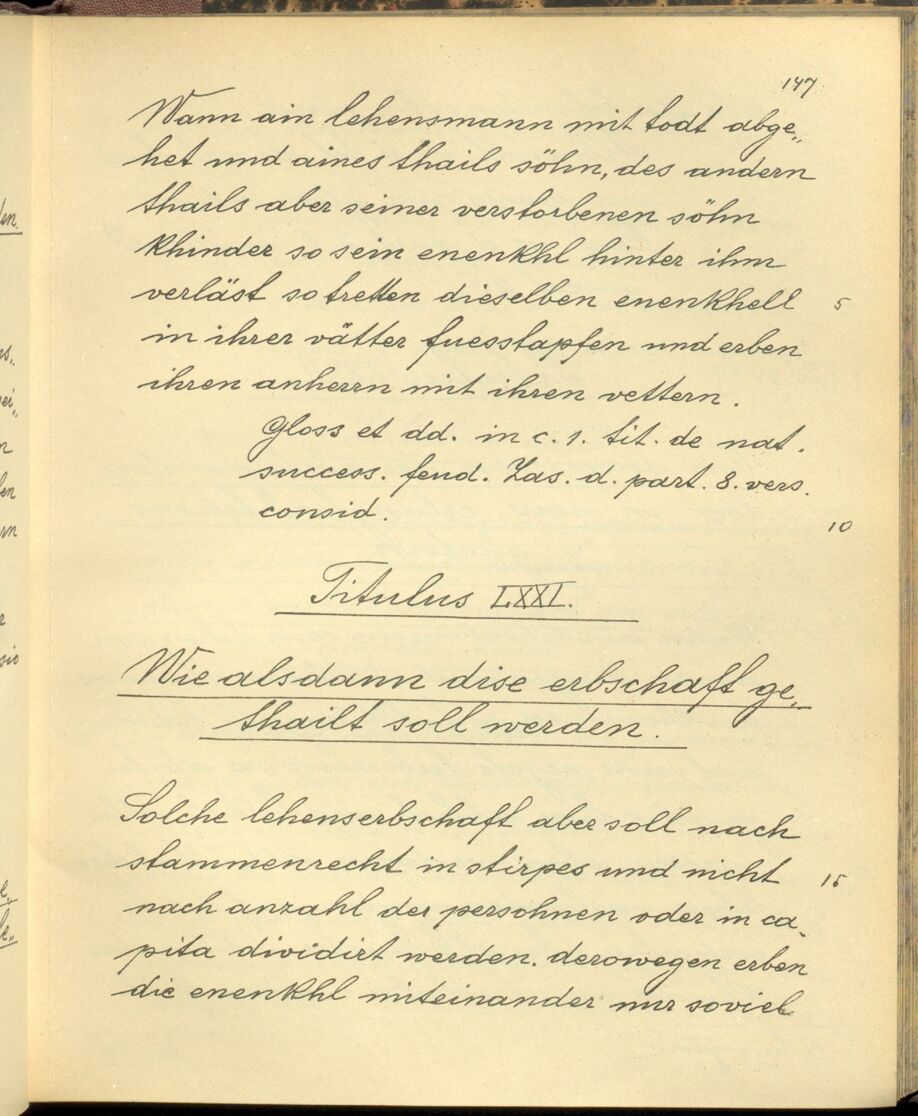 147
Wann ain lehensmann mit todt abge„
het und aines thails söhn, des andern
thails aber seiner verstorbenen söhn
khinder so sein enenkhl hinter ihm
verläst so tretten dieselben enenkhell 5
in ihrer vätter fuesstapfen und erben
ihren anherrn mit ihren vettern.
Gloss et dd. in c. 1. tit. de nat.
success. feud. Zas. d. part. 8. vers.
consid. 10
Titulus LXXI.
Wie alsdann dise erbschaft ge„
thailt soll werden.
Solche lehenserbschaft aber soll nach
stammenrecht in stirpes und nicht 15
nach anzahl der persohnen oder in ca„
pita dividirt werden. derowegen erben
die enenkhl miteinander nur soviel